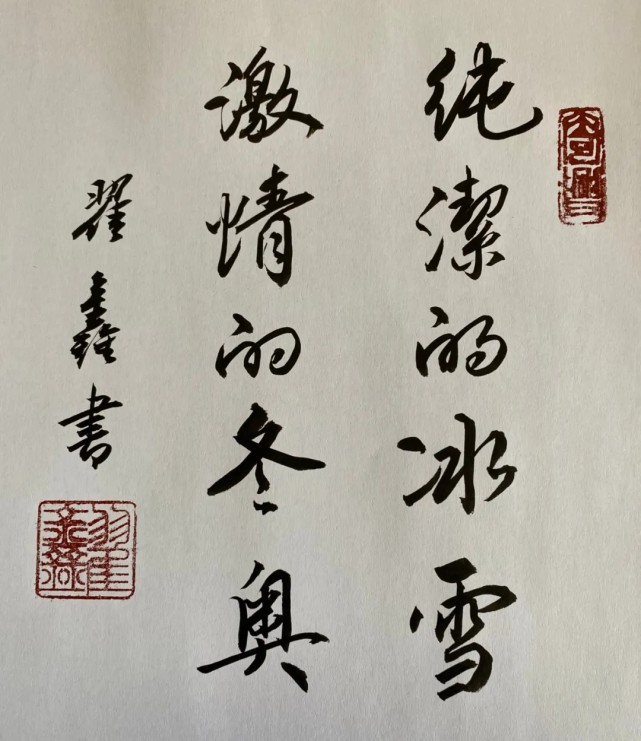 纯潔的冰雪
激情的冬奥
翟鑫書
翟鑫